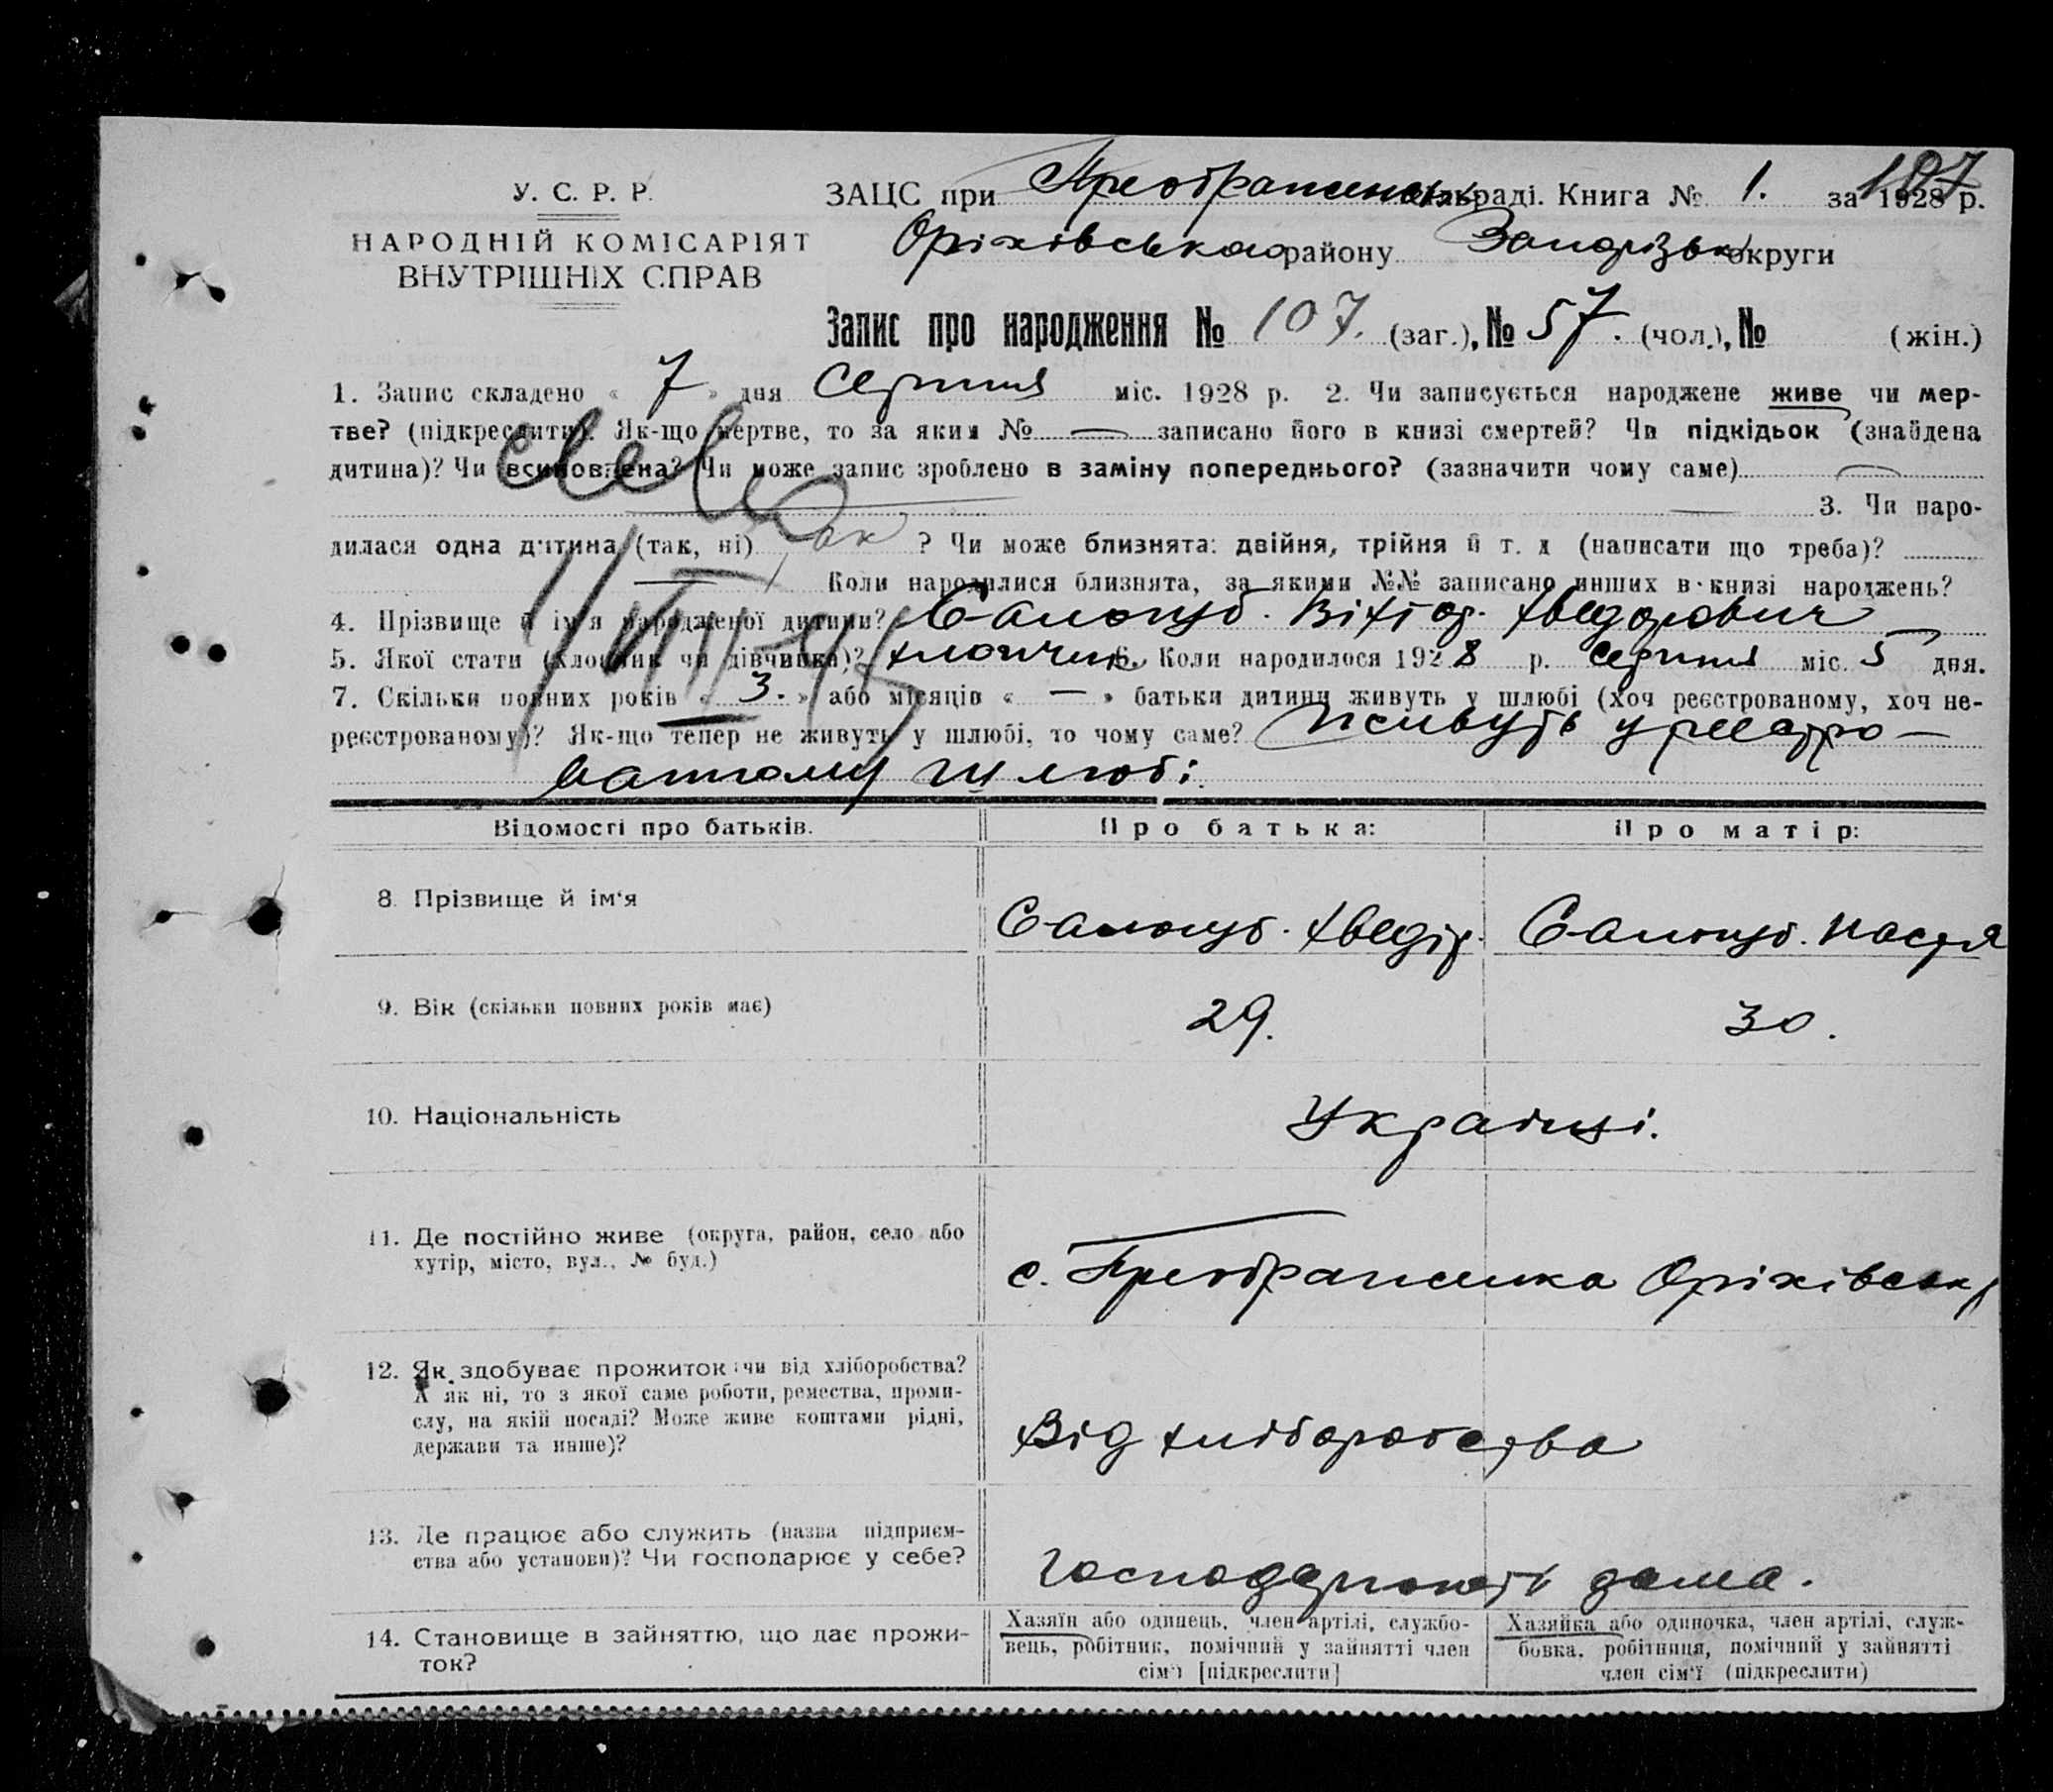 У. С. Р. Р.
НАРОДНІЙ КОМІСАРІЯТ
ВНУТРІШНІХ СПРАВ
ЗАЦС при Преображенськ. сільраді. Книга № 1. за 1928 р.
107
Оріхівського району Запорізьк округи
Запис про народження № 107. (заг.), № 57. (чол.), № (жін.)
1. Запис складено « 7 » дня серпня міс. 1928 р. 2. Чи записується народжене живе чи мер-
тве? (підкреслити). Як-що мертве, то за яким № — записано його в книзі смертей? Чи підкідьок (знайдена
дитина)? Чи всиновлена? Чи може запис зроблено в заміну попереднього? (зазначити чому саме) —
— 3. Чи наро-
дилася одна дитина (так, ні) так ? Чи може близнята: двійня, трійня й т. д (написати що треба)?
— Коли народилися близнята, за якими №№ записано инших в книзі народжень?
4. Прізвище й ім'я народженої дитини? Салогуб. Віктор. Хведорович
5. Якої стати (хлопчик чи дівчинка)? хлопчик 6. Коли народилося 1928 р. серпня міс. 5 дня.
7. Скільки повних років « 3. » або місяців « — » батьки дитини живуть у шлюбі (хоч реєстрованому, хоч не-
реєстрованому)? Як-що тепер не живуть у шлюбі, то чому саме? живуть у реєстро-
ванному шлюбі.
Відомості про батьків. Про батька: Про матір:
8. Прізвище й ім'я Салогуб. Хведір. Салогуб. Настя
9. Вік (скільки повних років має) 29. 30.
10. Національність Українці.
11. Де постійно живе (округа, район, село або
хутір, місто, вул., № буд.)
с. Преображенка Оріхівськ р
12. Як здобуває прожиток: чи від хліборобства?
А як ні, то з якої саме роботи, ремества, проми-
слу, на якій посаді? Може живе коштами рідні,
держави та инше)?
Від хліборобства
13. Де працює або служить (назва підприєм-
ства або установи)? Чи господарює у себе?
Господарюють дома.
14. Становище в зайняттю, що дає прожи-
ток?
Хазяїн або одинець, член артілі, службо-
вець, робітник, помічний у зайнятті член
сім'ї [підкреслити]
Хазяйка або одиночка, член артілі, служ-
бовка, робітниця, помічний у зайнятті
член сім'ї (підкреслити)